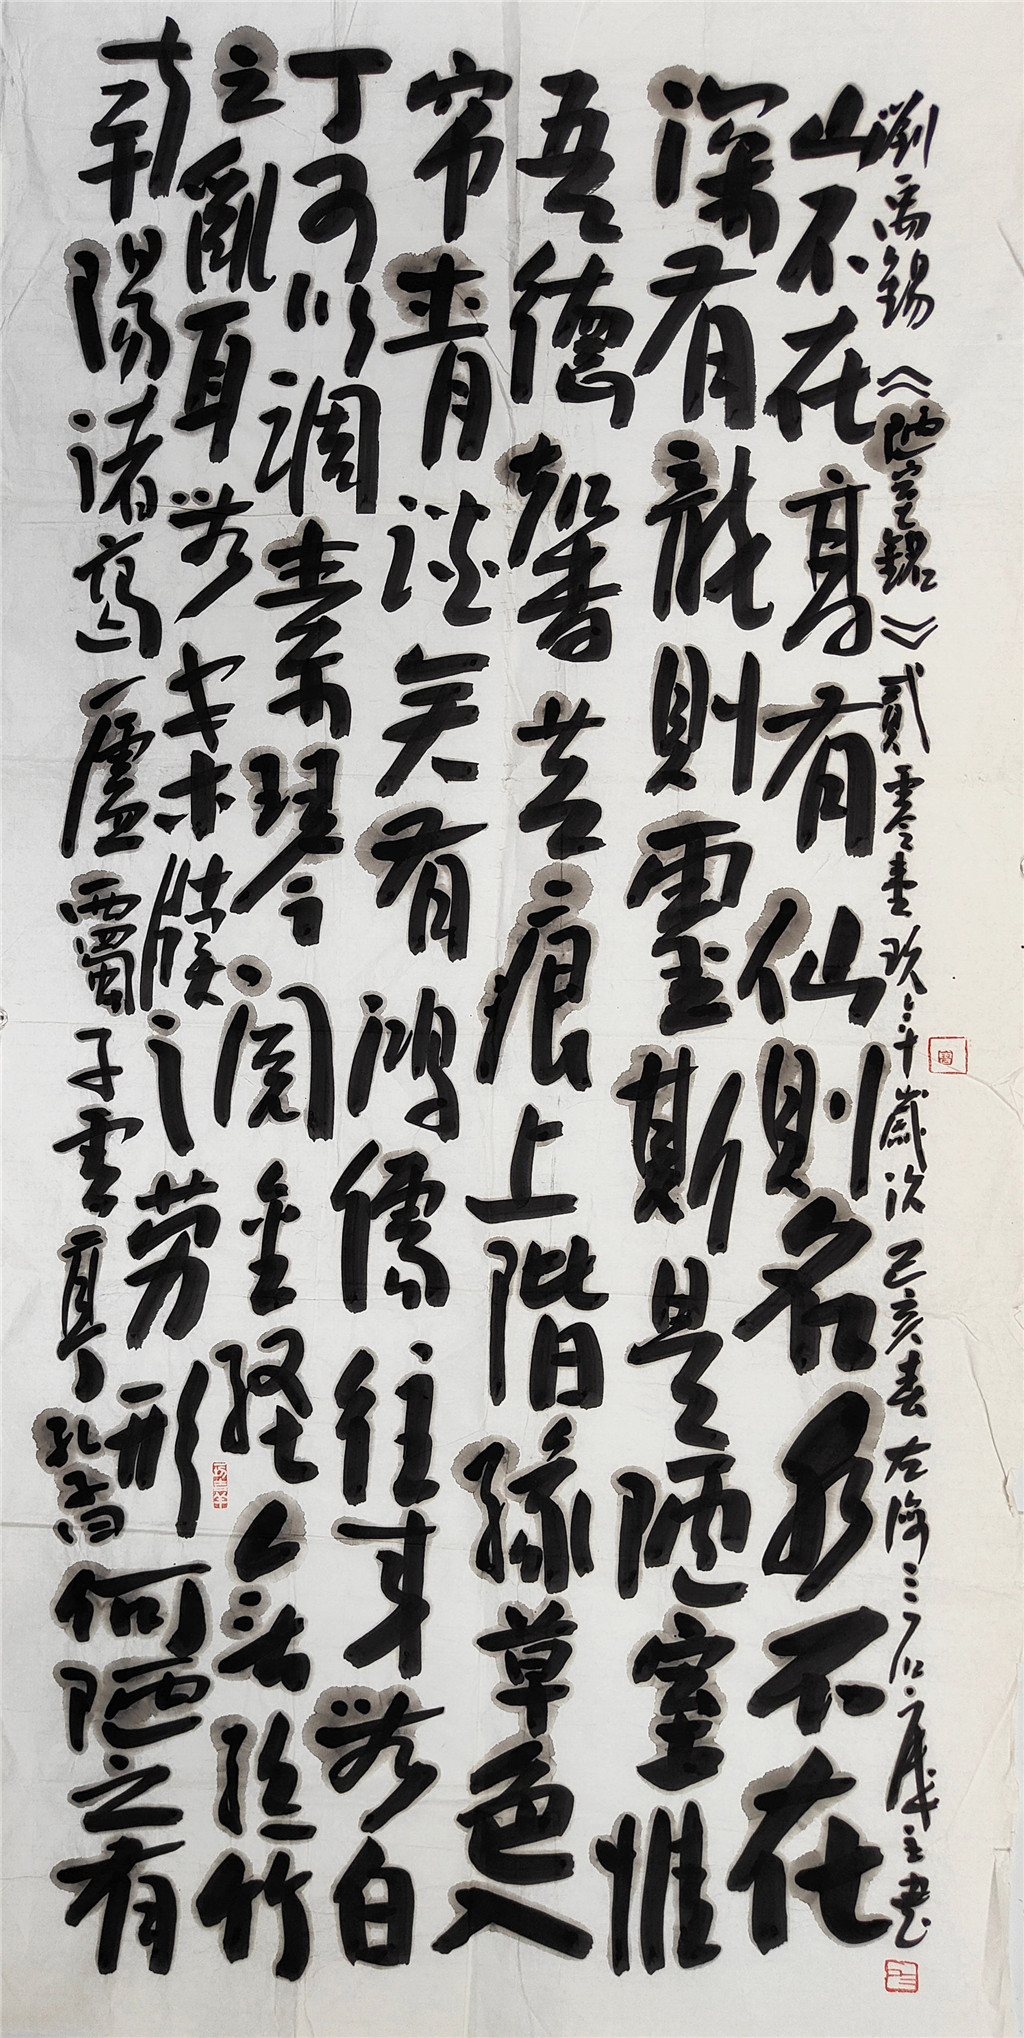 劉禹錫《陋室銘》貳零壹玖年歲次己亥春左海三書
山不在高有仙則名水不在
深有龍則靈斯是陋室惟
吾德馨苔痕上階綠草色入
帘青談笑有鴻儒往來無白
丁可以調素琴閱金經無絲竹
之亂耳無案牘之勞形
南陽諸葛廬西蜀子雲亭孔子云何陋之有